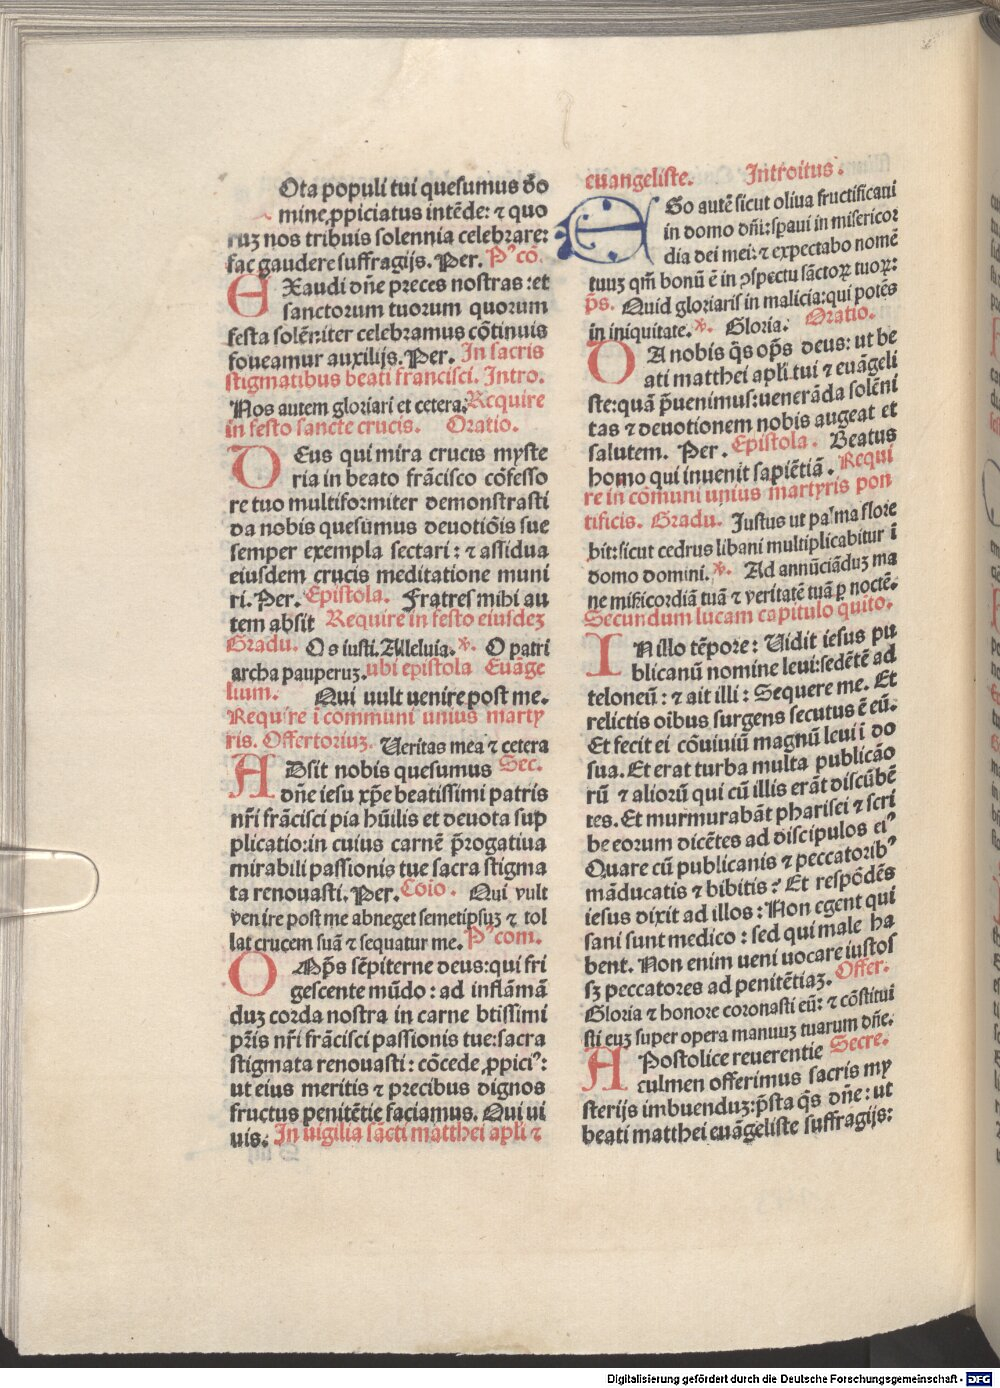 Ota populi tui quesumus do
mine ꝓpiciatus intēde: ⁊ quo
ruꝫ nos tribuis solennia celebrare:
fac gaudere suffragijs. Per. P'cō.
EXaudi dn̄e preces nostras: et
sanctorum tuorum quorum
festa solēniter celebramus cōtinuis
foueamur auxilijs. Per. In sacris
stigmatibus beati francisci. Intro.
Nos autem gloriari et cetera. Require
in festo sancte crucis. Oratio.
DEus qui mira crucis myste
ria in beato frācisco cōfesso
re tuo multiformiter demonstrasti
da nobis quesumus deuotiōis sue
semper exempla sectari: ⁊ assidua
eiusdem crucis meditatione muni
ri. Per. Epistola. Fratres mihi au
tem absit Require in festo eiusdeꝫ
Gradu. Os iusti. Alleluia. ℣. O patri
archa pauperuꝫ. ubi epistola Euāge
lium. Qui uult uenire post me.
Require ī communi unius marty
ris. Offertoriuꝫ. Ueritas mea ⁊ cetera
ADsit nobis quesumus Sec.
dn̄e iesu xp̄e beatissimi patris
nr̄i frācisci pia hūilis et deuota sup
plicatio: in cuius carnē p̄rogatiua
mirabili passionis tue sacra stigma
ta renouasti. Per. Cōio. Qui vult
venire post me abneget semetipsuꝫ ⁊ tol
lat crucem suā ⁊ sequatur me. P'com.
OMp̄s sēpiterne deus: qui fri
gescente mūdo: ad inflāmā
duꝫ corda nostra in carne btissimi
pr̄is nr̄i frācisci passionis tue: sacra
stigmata renouasti: cōcede ꝓpici':
ut eius meritis ⁊ precibus dignos
fructus penitētie faciamus. Qui ui
uis. In uigilia sācti matthei apl̄i ⁊
euangeliste. Introitus.
EGo autē sicut oliua fructificaui
in domo dn̄i: sp̄aui in misericor
dia dei mei: ⁊ expectabo nomē
tuuꝫ qm̄ bonū ē in ꝯspectu sāctoꝝ tuoꝝ:
p̄s. Quid gloriaris in malicia: qui potēs
in iniquitate. ℣. Gloria. Oratio.
DA nobis q̄s op̄s deus: ut be
ati matthei apl̄i tui ⁊ euāgeli
ste: quā p̄uenimus: uenerāda solēni
tas ⁊ deuotionem nobis augeat et
salutem. Per. Epistola. Beatus
homo qui inuenit sapiētiā. Requi
re in cōmuni unius martyris pon
tificis. Gradu. Justus ut palma flore
bit: sicut cedrus libani multiplicabitur ī
domo domini. ℣. Ad annūciāduꝫ ma
ne mīsricordiā tuā ⁊ veritatē tuā ꝑ noctē.
Secundum lucam capitulo quīto.
IN illo tēpore: Uidit iesus pu
blicanū nomine leui: sedētē ad
teloneū: ⁊ ait illi: Sequere me. Et
relictis oībus surgens secutus ē eū.
Et fecit ei cōuiuiū magnū leui ī do
sua. Et erat turba multa publicāo
rū ⁊ aliorū qui cū illis erāt discūbē
tes. Et murmurabāt pharisei ⁊ scri
be eorum dicētes ad discipulos ei'
Quare cū publicanis ⁊ peccatorib'
māducatis ⁊ bibitis? Et respōdēs
iesus dixit ad illos: Non egent qui
sani sunt medico: sed qui male ha
bent. Non enim ueni uocare iustos
sꝫ peccatores ad penitētiaꝫ. Offer.
Gloria ⁊ honore coronasti eū: ⁊ cōstitui
sti euꝫ super opera manuuꝫ tuarum dn̄e.
APostolice reuerentie Secre.
culmen offerimus sacris my
sterijs imbuenduꝫ: p̄sta q̄s dn̄e: ut
beati matthei euāgeliste suffragijs:
Digitalisierung gefördert durch die Deutsche Forschungsgemeinschaft - DFG